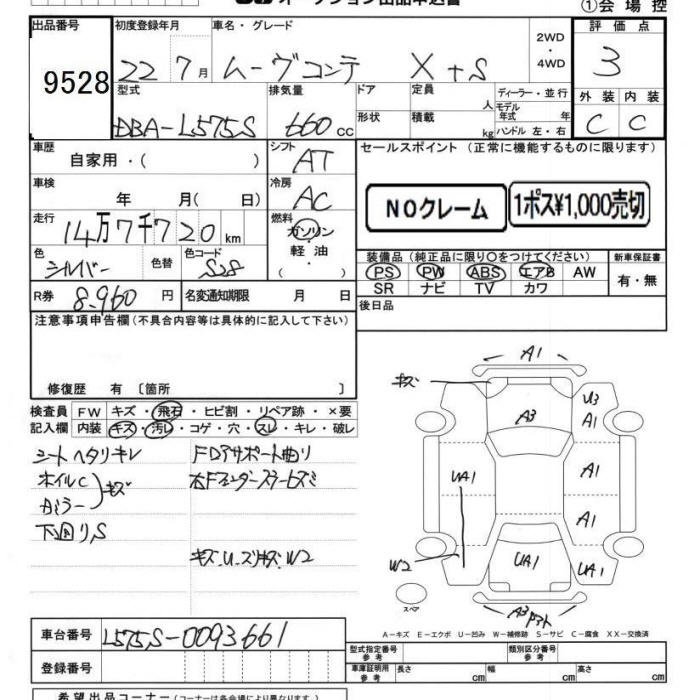 ①会場控
出品番号 初度登録年月 車名・グレード 2WD・4WD 評価点
9528 22 7月 ムーヴコンテ X+S 3
型式 排気量 ドア 定員 人 ディーラー・並行 外装 内装
DBA-L575S 660cc 形状 積載 kg モデル年式 年 ハンドル 左・右 C C
車歴 自家用・( ) シフト AT
セールスポイント (正常に機能するものに限ります)
車検 年 月( 日) 冷房 AC
NOクレーム 1ポス¥1,000売切
走行 14万7千720km 燃料 ガソリン・軽油
色 シルバー 色替 色コード S28
装備品 (純正品に限り○をつけてください) 新車保証書
PS PW ABS エアB AW 有・無
SR ナビ TV カワ
R券 8.960円 名変通知期限 月 日
後日品
注意事項申告欄 (不具合内容等は具体的に記入して下さい)
修復歴 有 〔箇所 〕
検査員記入欄 FW キズ・飛石・ヒビ割・リペア跡・×要
内装 キズ・汚レ・コゲ・穴・スレ・キレ・破レ
シートヘタリキレ
ホイルC
カガミラー キズ
下廻りS
FDアサポート曲り
右Fフェンダーステーヒズミ
キズ.U.ズリキズ.W2
A1
キズ
A3
U3
A1
UA1
A1
A1
W2
UA1
UA1
スペア
A-キズ E-エクボ U-凹み W-補修跡 S-サビ C-腐食 XX-交換済
車台番号 L575S-0093661
登録番号
型式指定番号 参考 類別区分番号 参考
車庫証明用 参考 長さ cm 幅 cm 高さ cm
希望出品コーナー (コーナーは各会場により異なります。)